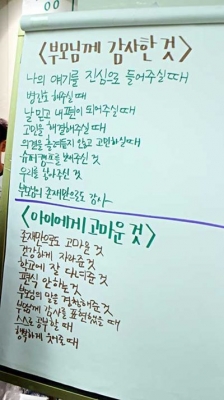 <부모님께 감사한 것>
나의 얘기를 진심으로 들어주실때
해주실 때
날 믿고 내 편이 되어주실때
고민을 해결해주실 때
의견을 않고 고민하실때
보내주신 것
우리를 낳아주신 것
부모님의 존재만으로도 감사
<아이에게 고마운 것>
존재만으로 고마운 것
건강하게 자라준것
학교에 잘 다녀준 것
편식 안하는것
부모님의 말을 경청해준것
부모님께 감사를 표현했을 때
스스로 공부할 때
행복하게 웃어줄 때